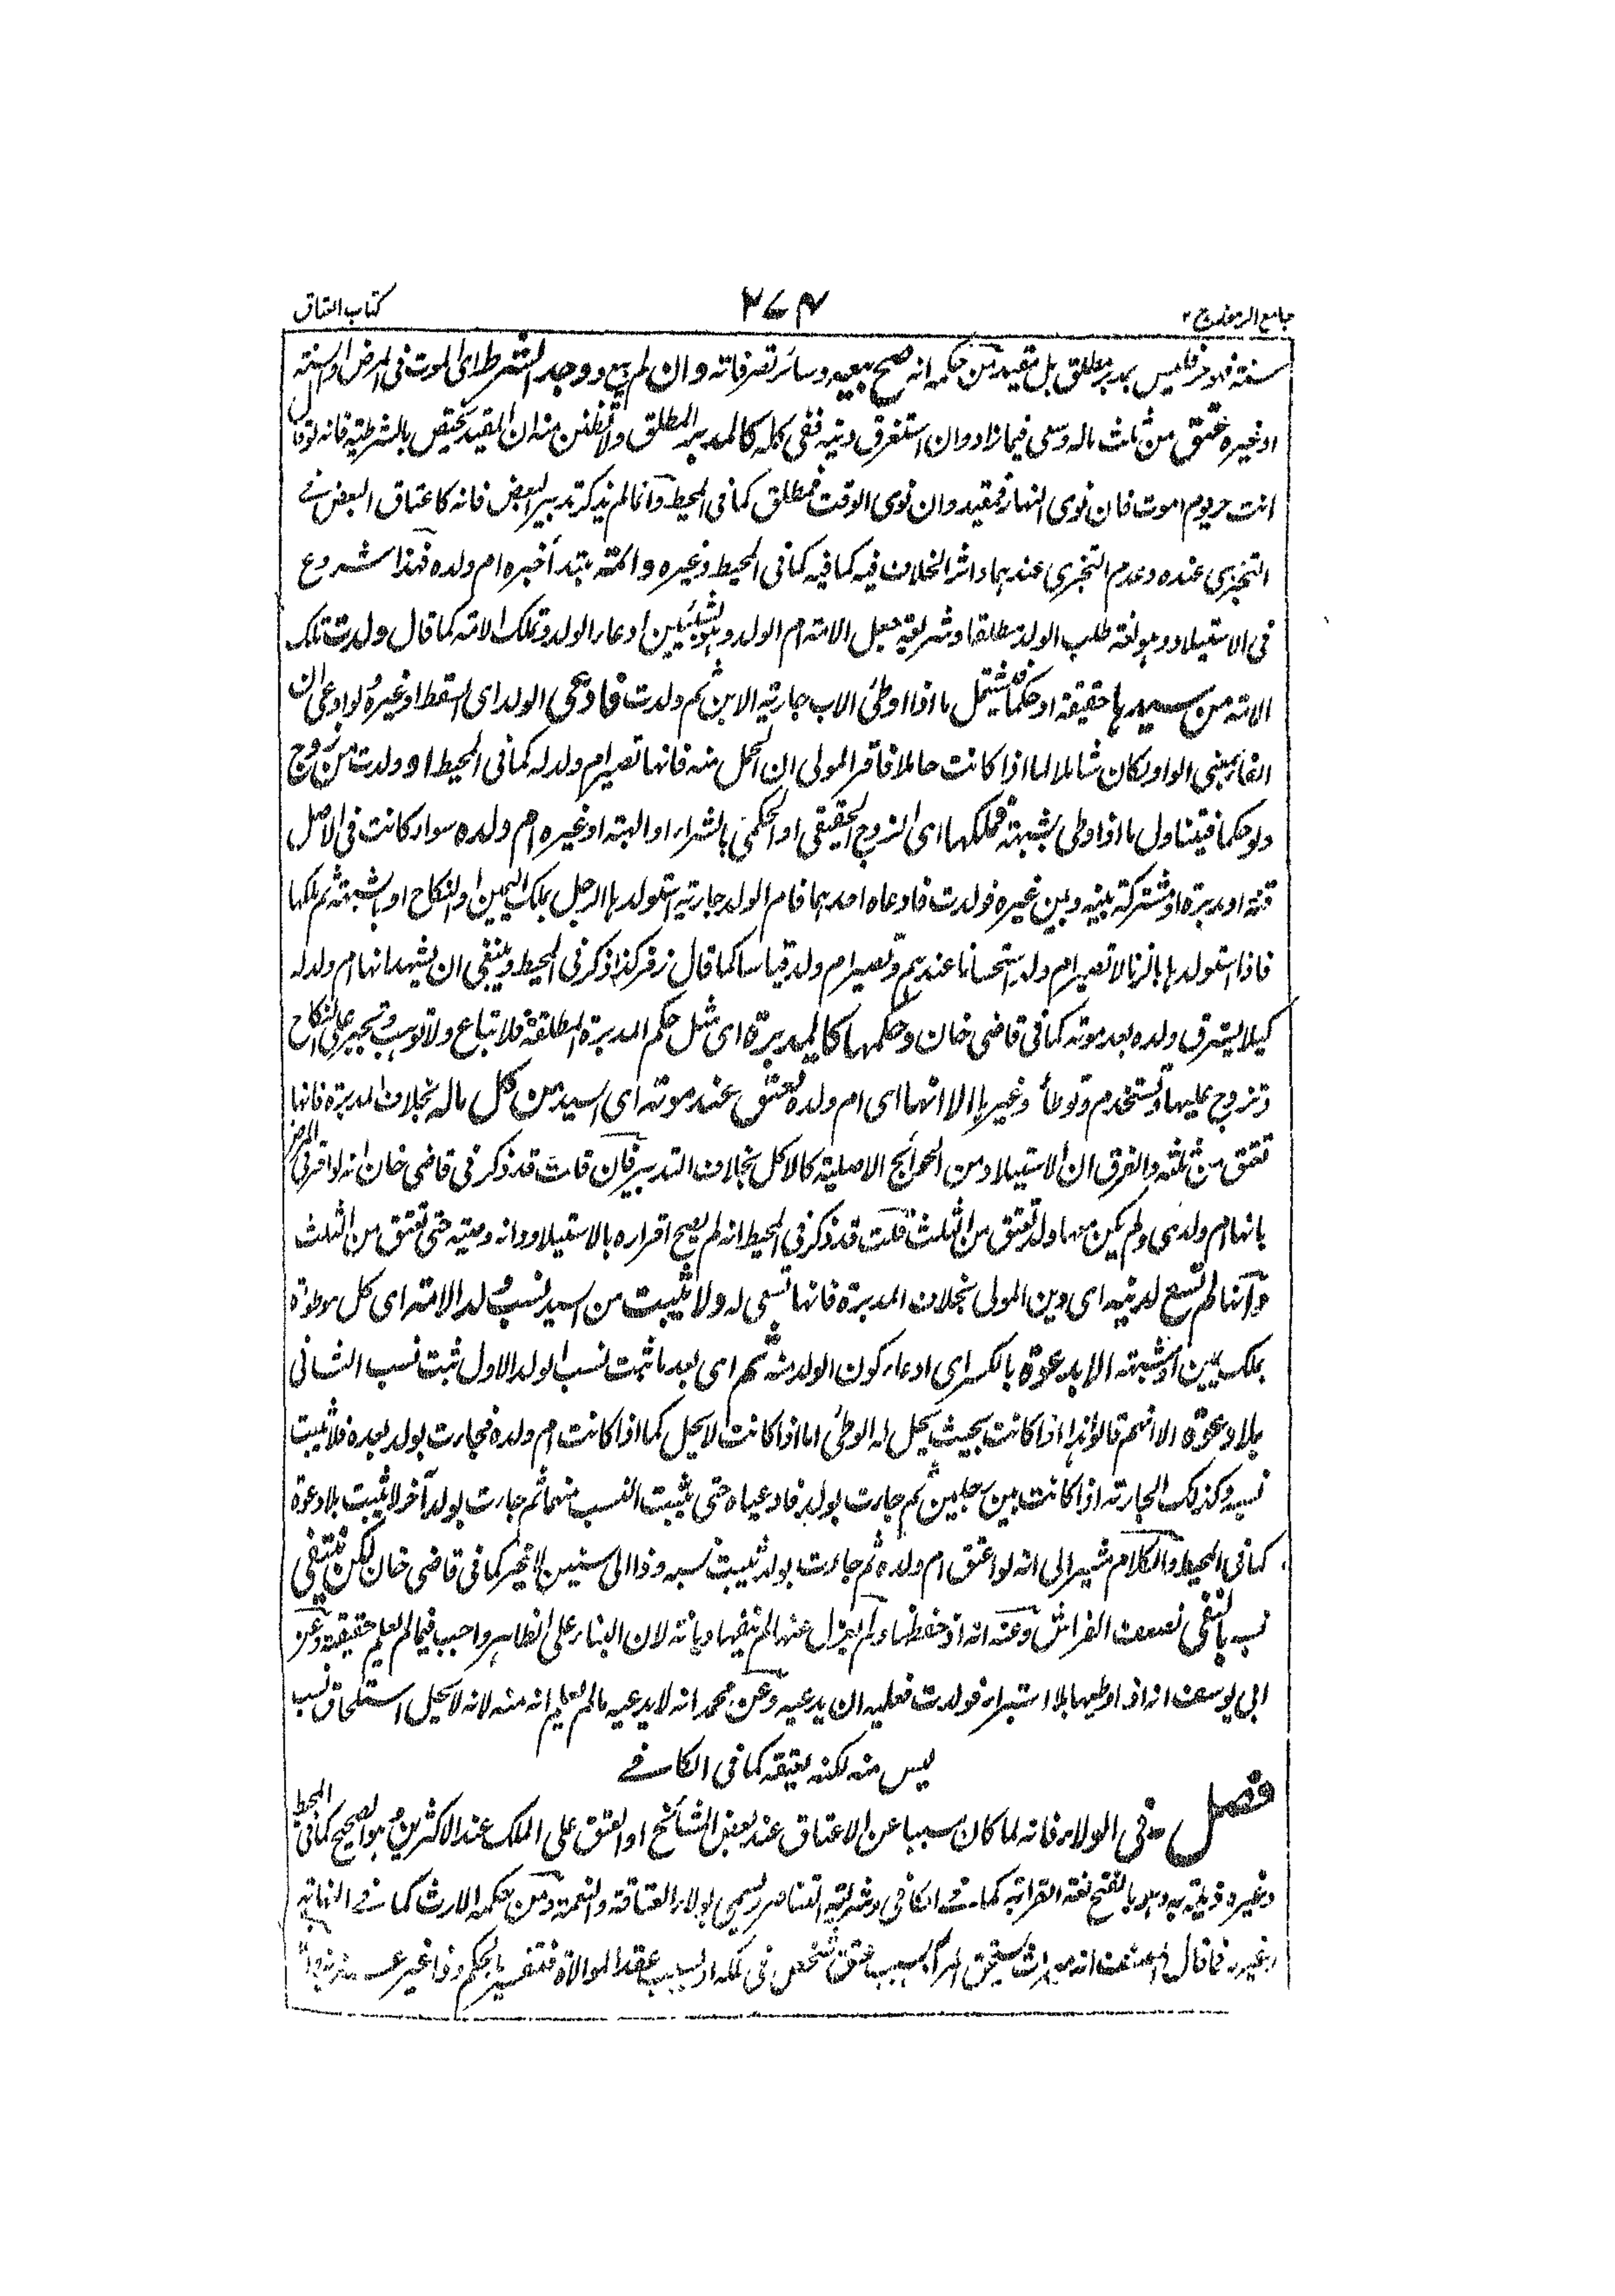 جامع الرموز ج ٢ ٣٧٤ كتاب العتاق
سنة فهو حر فليس بمدبر مطلق بل مقيد من حكمه انه صح بيعه وسائر تصرفاته وان لم يبع ووجد الشرط اى الموت فى المرض او السنة
او غيره عتق من ثلث ماله وسعى فيما زاد وان استغرق دينه ففى كله كالمدبر المطلق ولا تظنن منه ان المقيد يختص بالشرطية فانه لو قال
انت حر يوم اموت فان نوى النهار فمقيد وان نوى الوقت فمطلق كما فى المحيط وانما لم يذكر تدبير البعض فانه كاعتاق البعض فے
التجزى عنده وعدم التجزى عندهما واثر الخلاف فيه كما فيه كما فى المحيط وغيره وامة مبتدأ خبره ام ولده فهذا شروع
فى الاستيلاد وهو لغة طلب الولد مطلقا وشريعة جعل الامة ام الولد وهو بشيئين ادعاء الولد وتملك الامة كما قال ولدت تلك
الامة من سيدها حقيقة او حكما فيشتمل ما اذا وطئ الاب جارية الابن ثم ولدت فادعى الولد اى السقط او غيره ولو ادعى ان
الفاء بمعنى الواو لكان شاملا لما اذا كانت حاملا فاقر المولى ان الحمل منه فانها تصير ام ولد له كما فى المحيط او ولدت من زوج
ولو حكما فيتناول ما اذا وطى بشبهة فملكها اى الزوج الحقيقى او الحكمى بالشراء او الهبة او غيره ام ولده سواء كانت فى الاصل
قنة او مدبرة او مشتركة بينه وبين غيره فولدت فادعاه احدهما فام الولد جارية استولدها الرجل بملك اليمين او النكاح او بالشبهة ثم ملكها
فاذا استولدها بالزنا لا تصير ام ولد استحسانا عندهم وتصير ام ولد قياسا كما قال زفر كذا ذكر فى المحيط وينبغى ان يشهد انها ام ولد له
كيلا يسترق ولده بعد موته كما فى قاضى خان وحكمها كالمدبرة اى مثل حكم المدبرة المطلقة فلا تباع ولا توهب وتجبر على النكاح
وتزوج عليها وتستخدم وتوطأ وغيرها الا انها اى ام ولده تعتق عند موته اى السيد من كل ماله بخلاف المدبرة فانها
تعتق من ثلثه والفرق ان الاستيلاد من الحوائج الاصلية كالاكل بخلاف التدبير فان قلت قد ذكر فى قاضى خان انه لو اقر فى المرض
بانها ام ولدى ولم يكن معها ولد تعتق من الثلث قلت قد ذكر فى المحيط انه لم يصح اقراره بالاستيلاد وانه وصية حتى تعتق من الثلث
وانها لم تسع لدينه اى دين المولى بخلاف المدبرة فانها تسعى له ولا يثبت من السيد نسب ولد الامة اى كل موطوءة
بملك يمين او شبهة الا بدعوة بالكسر اى ادعاء كون الولد منه ثم اى بعد ما ثبت نسب الولد الاول ثبت نسب الثانى
بلا دعوة الا انهم قالوا هذا اذا كانت بحيث يحل له الوطئ اما اذا كانت لا يحل كما اذا كانت ام ولده فجاءت بولد بعده فلا يثبت
نسبه وكذلك الجارية اذا كانت بين رجلين ثم جاءت بولد فادعياه حتى يثبت النسب منهما ثم جاءت بولد آخر لا يثبت بلا دعوة
كما فى المحيط والكلام مشير الى انه لو اعتق ام ولده ثم جاءت بولد يثبت نسبه وذا الى سنين لا غير كما فى قاضى خان لكن ينتفى
نسبه بالنفى لضعف الفراش وعنه انه اذ حفظها ولم يعزل عنها لم ينفها ديانة لان البناء على الظاهر واجب فيما لم يعلم حقيقة وعن
ابى يوسف انه اذا وطيها بلا استبراء فولدت فعليه ان يدعيه وعن محمد انه لا يدعيه ما لم يعلم انه منه لانه لا يحل استلحاق نسب
ليس منه لكنه يعتقه كما فى الكافے
فصل فى الولاء فانه لما كان مسببا عن الاعتاق عند بعض المشائخ او العتق على الملك عند الاكثرين وهو الصحيح كما فى المحيط
وغيره ذيله به وهو بالفتح لغة القرابة كما فے الكافى وشريعة التناصر يسمى بولاء العتاقة والنعمة ومن حكمه الارث كما فے النهاية
وغيره فما قال المصنف انه ميراث يستحق المرأ بسبب عتق شخص فى ملكه او بسبب عقد الموالاة فتفسير بالحكم وذا غير